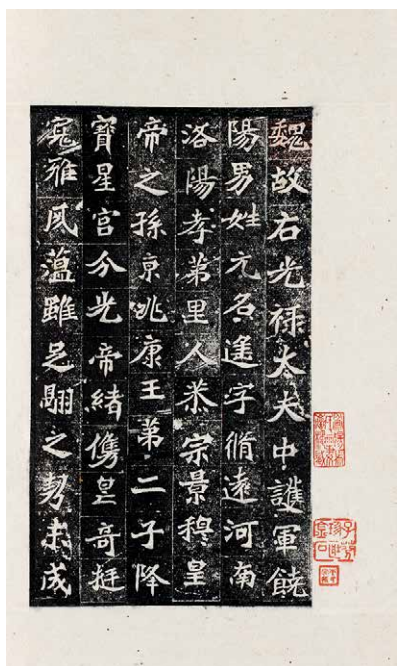 魏故右光祿太夫中護軍饒
陽男姓元名遙字脩遠河南
洛陽孝弟里人恭宗景穆皇
帝之孫京兆康王弟二子降
寶星宮分光帝緒儁皇奇挺
寬雅夙蘊雖兄翾之勢未成